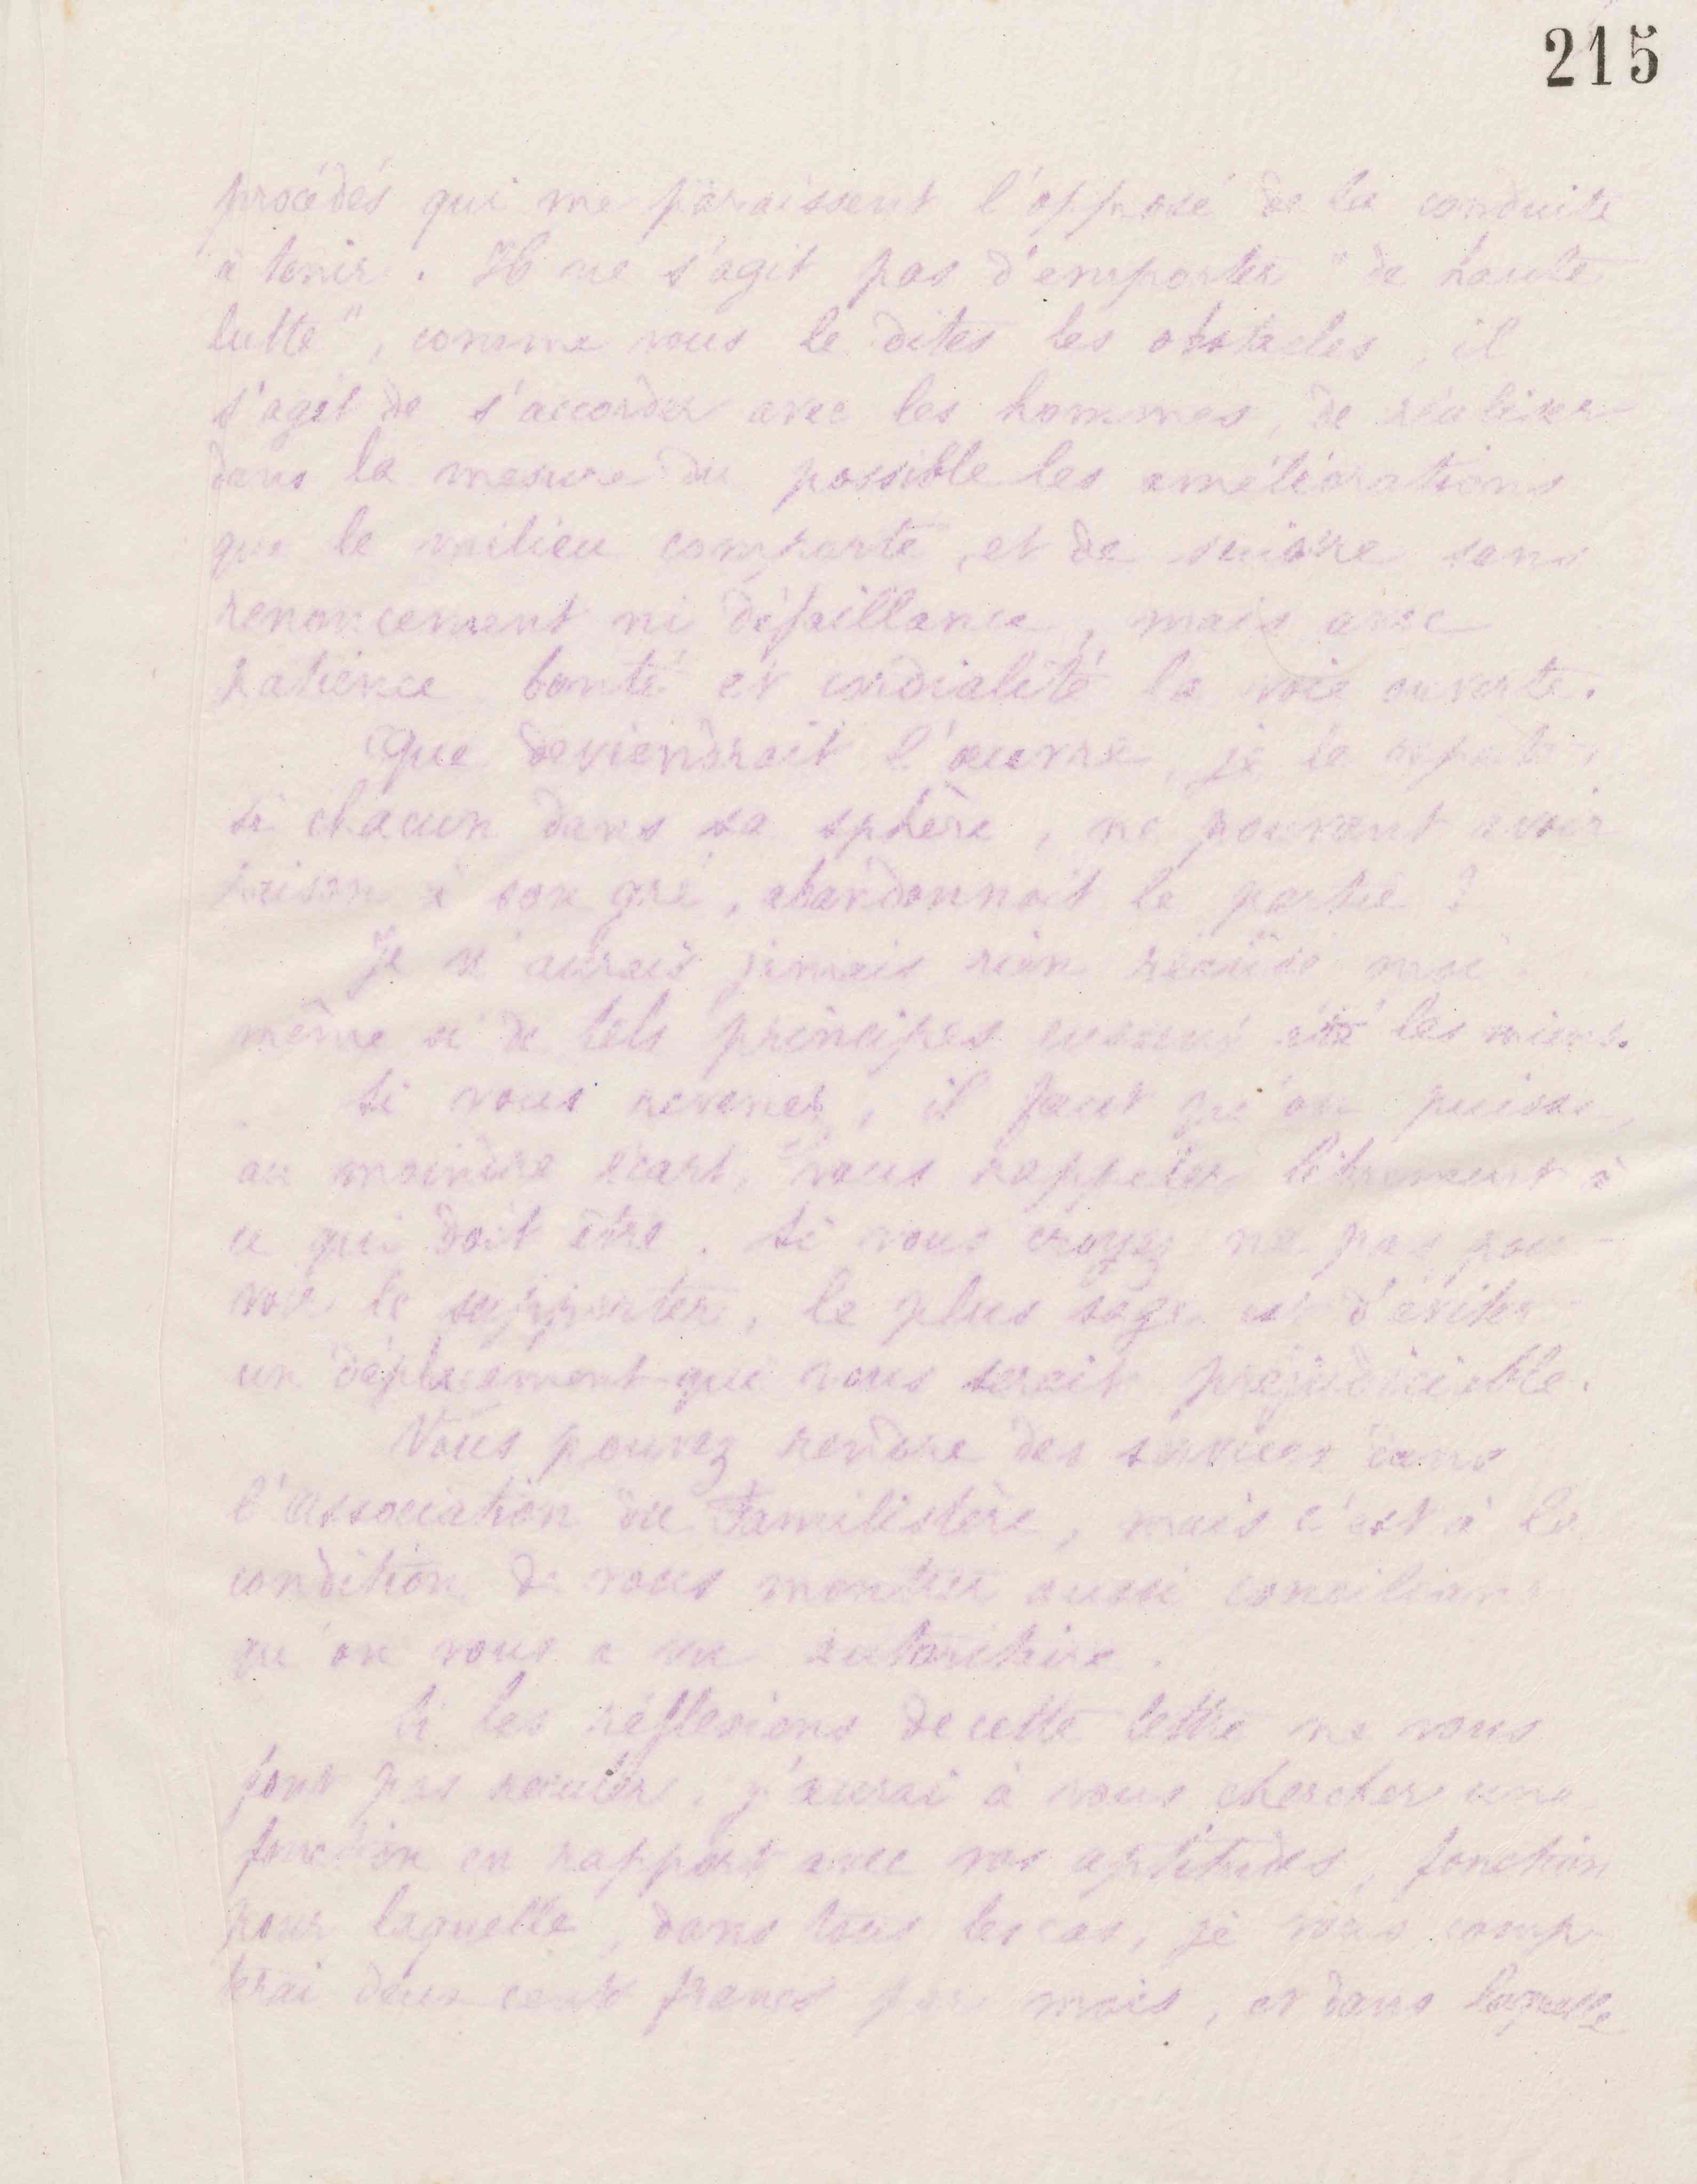 215
procédés qui me paraissent l'opposé de la conduite
à tenir. Il ne s'agit pas d'emporter "de haute
lutte", comme vous le dites les obstacles, il
s'agit de s'accorder avec les hommes, de réaliser
dans la mesure du possible les améliorations
que le milieu comporte, et de suivre sans
renoncement ni défaillance, mais avec
patience bonté et cordialité la voie ouverte.
Que deviendrait l'œuvre, je le répète,
si chacun dans sa sphère, ne pouvant avoir
raison à son gré, abandonnait la partie ?
Je n'aurais jamais rien réalisé moi
même si de tels principes eussent été les miens.
Si vous revenez, il faut qu'on puisse,
au moindre écart, vous rappeler librement à
ce qui doit être. Si vous croyez ne pas pou-
voir le supporter, le plus sage est d'éviter
un déplacement qui vous serait préjudiciable.
Vous pouvez rendre des services dans
l'association du Familistère, mais c'est à la
condition de vous montrer aussi conciliant
qu'on vous a vu autoritaire.
Si les réflexions de cette lettre ne vous
font pas reculer, j'aurai à vous chercher une
fonction en rapport avec vos aptitudes, fonction
pour laquelle, dans tous les cas, je vous comp-
terai deux cents francs par mois, et dans laquelle